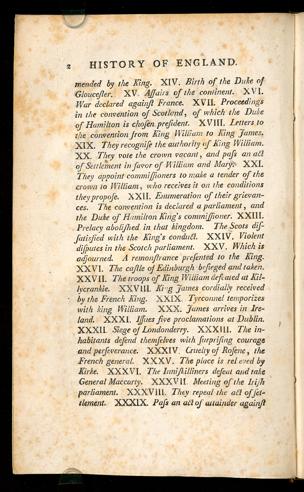 2 HISTORY OF ENGLAND.
mended by the King. XIV. Birth of the Duke of
Glouceſter. XV. Affairs of the continent. XVI.
War declared againſt France. XVII. Proceedings
in the convention of Scotland, of which the Duke
of Hamilton is choſen preſident. XVIII. Letters to
the convention from King William to King James.
XIX. They recogniſe the authority of King William.
XX. They vote the crown vacant, and paſs an act
of Settlement in favor of William and Mary. XXI.
They appoint commiſſioners to make a tender of the
crown to William, who receives it on the conditions
they propoſe. XXII. Enumeration of their grievan-
ces. The convention is declared a parliament, and
the Duke of Hamilton King's commiſſioner. XXIII.
Prelacy aboliſhed in that kingdom. The Scots diſ-
ſatisfied with the King's conduct. XXIV. Violent
diſputes in the Scotch parliament. XXV. Which is
adjourned. A remonſtrance preſented to the King.
XXVI. The caſtle of Edinburgh beſieged and taken.
XXVII. The troops of King William defeated at Kil-
lycrankie. XXVIII. King James cordially received
by the French King. XXIX. Tyrconnel temporizes
with king William. XXX. James arrives in Ire-
land. XXXI. Iſſues five proclamations at Dublin.
XXXII. Siege of Londonderry. XXXIII. The in-
habitants defend themſelves with ſurpriſing courage
and perſeverance. XXXIV. Cruelty of Roſene, the
French general. XXXV. The place is relieved by
Kirke. XXXVI. The Inniſkilliners defeat and take
General Maccarty. XXXVII. Meeting of the Iriſh
parliament. XXXVIII. They repeal the act of ſet-
tlement. XXXIX. Paſs an act of attainder againſt